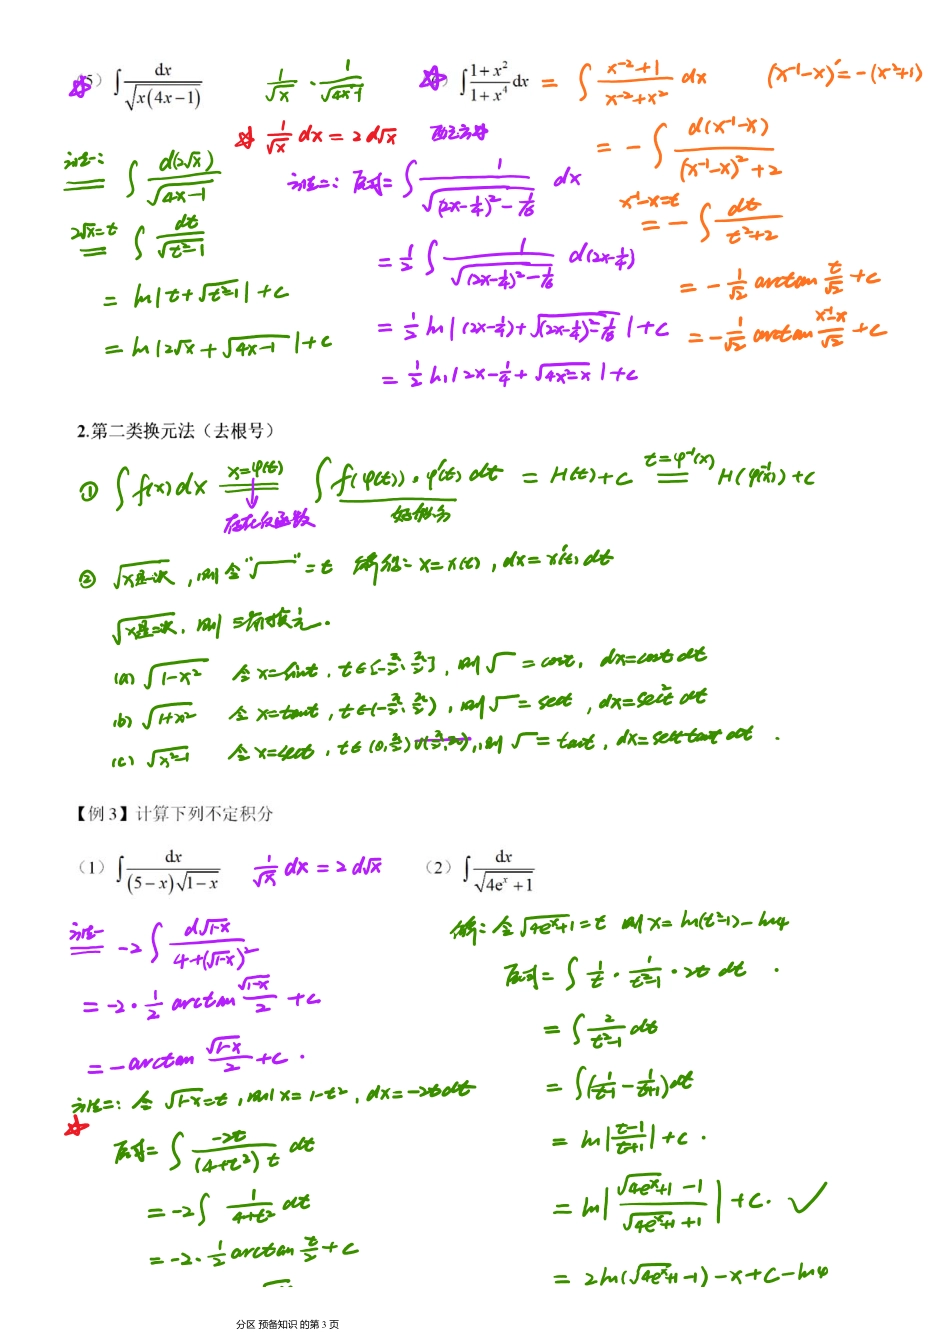 (5) ∫ dx/√(x(4x−1))
1/√x · 1/√(4x−1)
☆ 1/√x dx = 2d√x
方法一: ∫ d(2√x)/√(4x−1)
2√x=t ∫ dt/√(t²−1)
= ln|t+√(t²−1)|+C
= ln|2√x+√(4x−1)|+C
配完全方
方法二: 原式= ∫ 1/√((2x−1/4)²−1/16) dx
= 1/2 ∫ 1/√((2x−1/4)²−1/16) d(2x−1/4)
= 1/2 ln|(2x−1/4)+√((2x−1/4)²−1/16)|+C
= 1/2 ln|2x−1/4+√(4x²−x)|+C
∫ (1+x²)/(1+x⁴) dx = ∫ (x⁻²+1)/(x⁻²+x²) dx
(x⁻¹−x)′=−(x⁻²+1)
= −∫ d(x⁻¹−x)/((x⁻¹−x)²+2)
x⁻¹−x=t = −∫ dt/(t²+2)
= −1/√2 arctan t/√2 +C
= −1/√2 arctan (x⁻¹−x)/√2 +C
2.第二类换元法（去根号）
① ∫f(x)dx x=φ(t) ∫f(φ(t))·φ′(t)dt = H(t)+C t=φ⁻¹(x) H(φ⁻¹(x))+C
存在反函数
好积分
② √x是一次 ,则令"√ "=t 解得: x=x(t), dx=x′(t)dt
√x是二次, 则三角换元.
(a) √(1−x²) 令x=sint, t∈[−π/2,π/2], 则√ =cost, dx=cost dt
(b) √(1+x²) 令x=tant, t∈(−π/2,π/2), 则√ =sect, dx=sec²t dt
(c) √(x²−1) 令x=sect, t∈(0,π/2), 则√ =tant, dx=sect tant dt.
【例 3】计算下列不定积分
（1）∫ dx/((5−x)√(1−x)) 1/√x dx = 2d√x
方法一 −2∫ d√(1−x)/(4+(√(1−x))²)
= −2·1/2 arctan √(1−x)/2 +C
= −arctan √(1−x)/2 +C.
方法二: 令√(1−x)=t, 则x=1−t², dx=−2tdt
原式= ∫ −2t/((4+t²)t) dt
= −2∫ 1/(4+t²) dt
= −2·1/2 arctan t/2 +C
（2）∫ dx/√(4eˣ+1)
解: 令√(4eˣ+1)=t 则x=ln(t²−1)−ln4
原式= ∫ 1/t · 1/(t²−1) · 2t dt.
= ∫ 2/(t²−1) dt
= ∫(1/(t−1) − 1/(t+1))dt
= ln|(t−1)/(t+1)|+C.
= ln|(√(4eˣ+1)−1)/(√(4eˣ+1)+1)|+C. ✓
= 2ln(√(4eˣ+1)−1)−x+C−ln4
分区 预备知识 的第 3 页